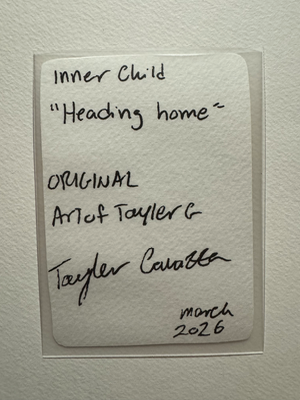 Inner Child
"Heading home"
ORIGINAL
Art of Tayler G
Tayler
march
2026